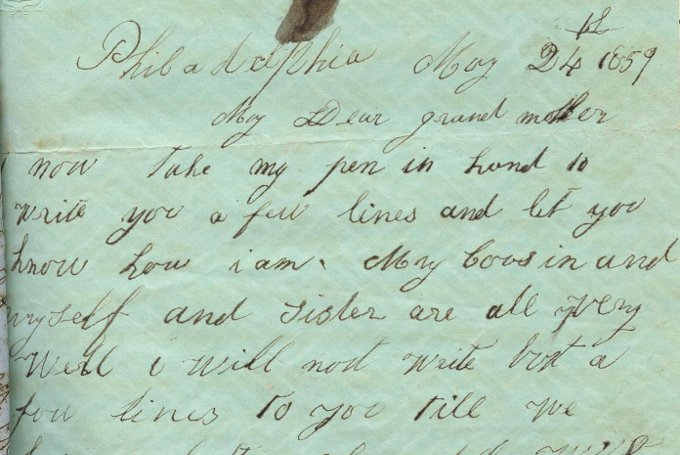 Philadelphia May 24th 1859
My Dear grand mother
i now take my pen in hand to
Write you a few lines and let you
know how i am. My Coosin and
myself and sister are all very
Well i will not write but a
few lines to you till we